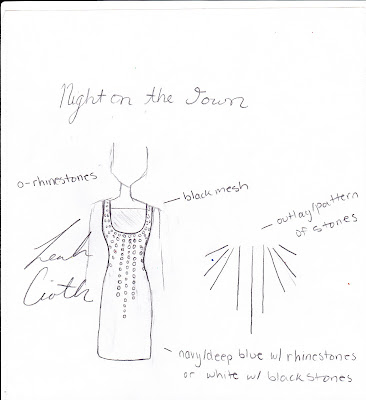 Night on the Town
o-rhinestones
black mesh
outlay/pattern
of stones
Leah
navy/deep blue w/ rhinestones
or white w/ black stones